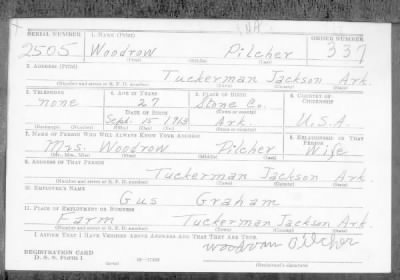 (NA)
SERIAL NUMBER 1. NAME (Print) ORDER NUMBER
2505 Woodrow Pilcher 337
(First) (Middle) (Last)
2. ADDRESS (Print)
Tuckerman Jackson Ark.
(Number and street or R. F. D. number) (Town) (County) (State)
3. TELEPHONE 4. AGE IN YEARS 5. PLACE OF BIRTH 6. COUNTRY OF CITIZENSHIP
none 27 Stone Co.
DATE OF BIRTH (Town or county)
Sept. 15 1913 Ark U.S.A
(Exchange) (Number) (Mo.) (Day) (Yr.) (State or country)
7. NAME OF PERSON WHO WILL ALWAYS KNOW YOUR ADDRESS 8. RELATIONSHIP OF THAT PERSON
Mrs. Woodrow Pilcher Wife
(Mr., Mrs., Miss) (First) (Middle) (Last)
9. ADDRESS OF THAT PERSON
Tuckerman Jackson Ark.
(Number and street or R. F. D. number) (Town) (County) (State)
10. EMPLOYER'S NAME
Gus Graham
11. PLACE OF EMPLOYMENT OR BUSINESS
Farm Tuckerman Jackson Ark.
(Number and street or R. F. D. number) (Town) (County) (State)
I AFFIRM THAT I HAVE VERIFIED ABOVE ANSWERS AND THAT THEY ARE TRUE.
Woodrow Pilcher
REGISTRATION CARD
D. S. S. FORM 1 (over) (Registrant's signature)